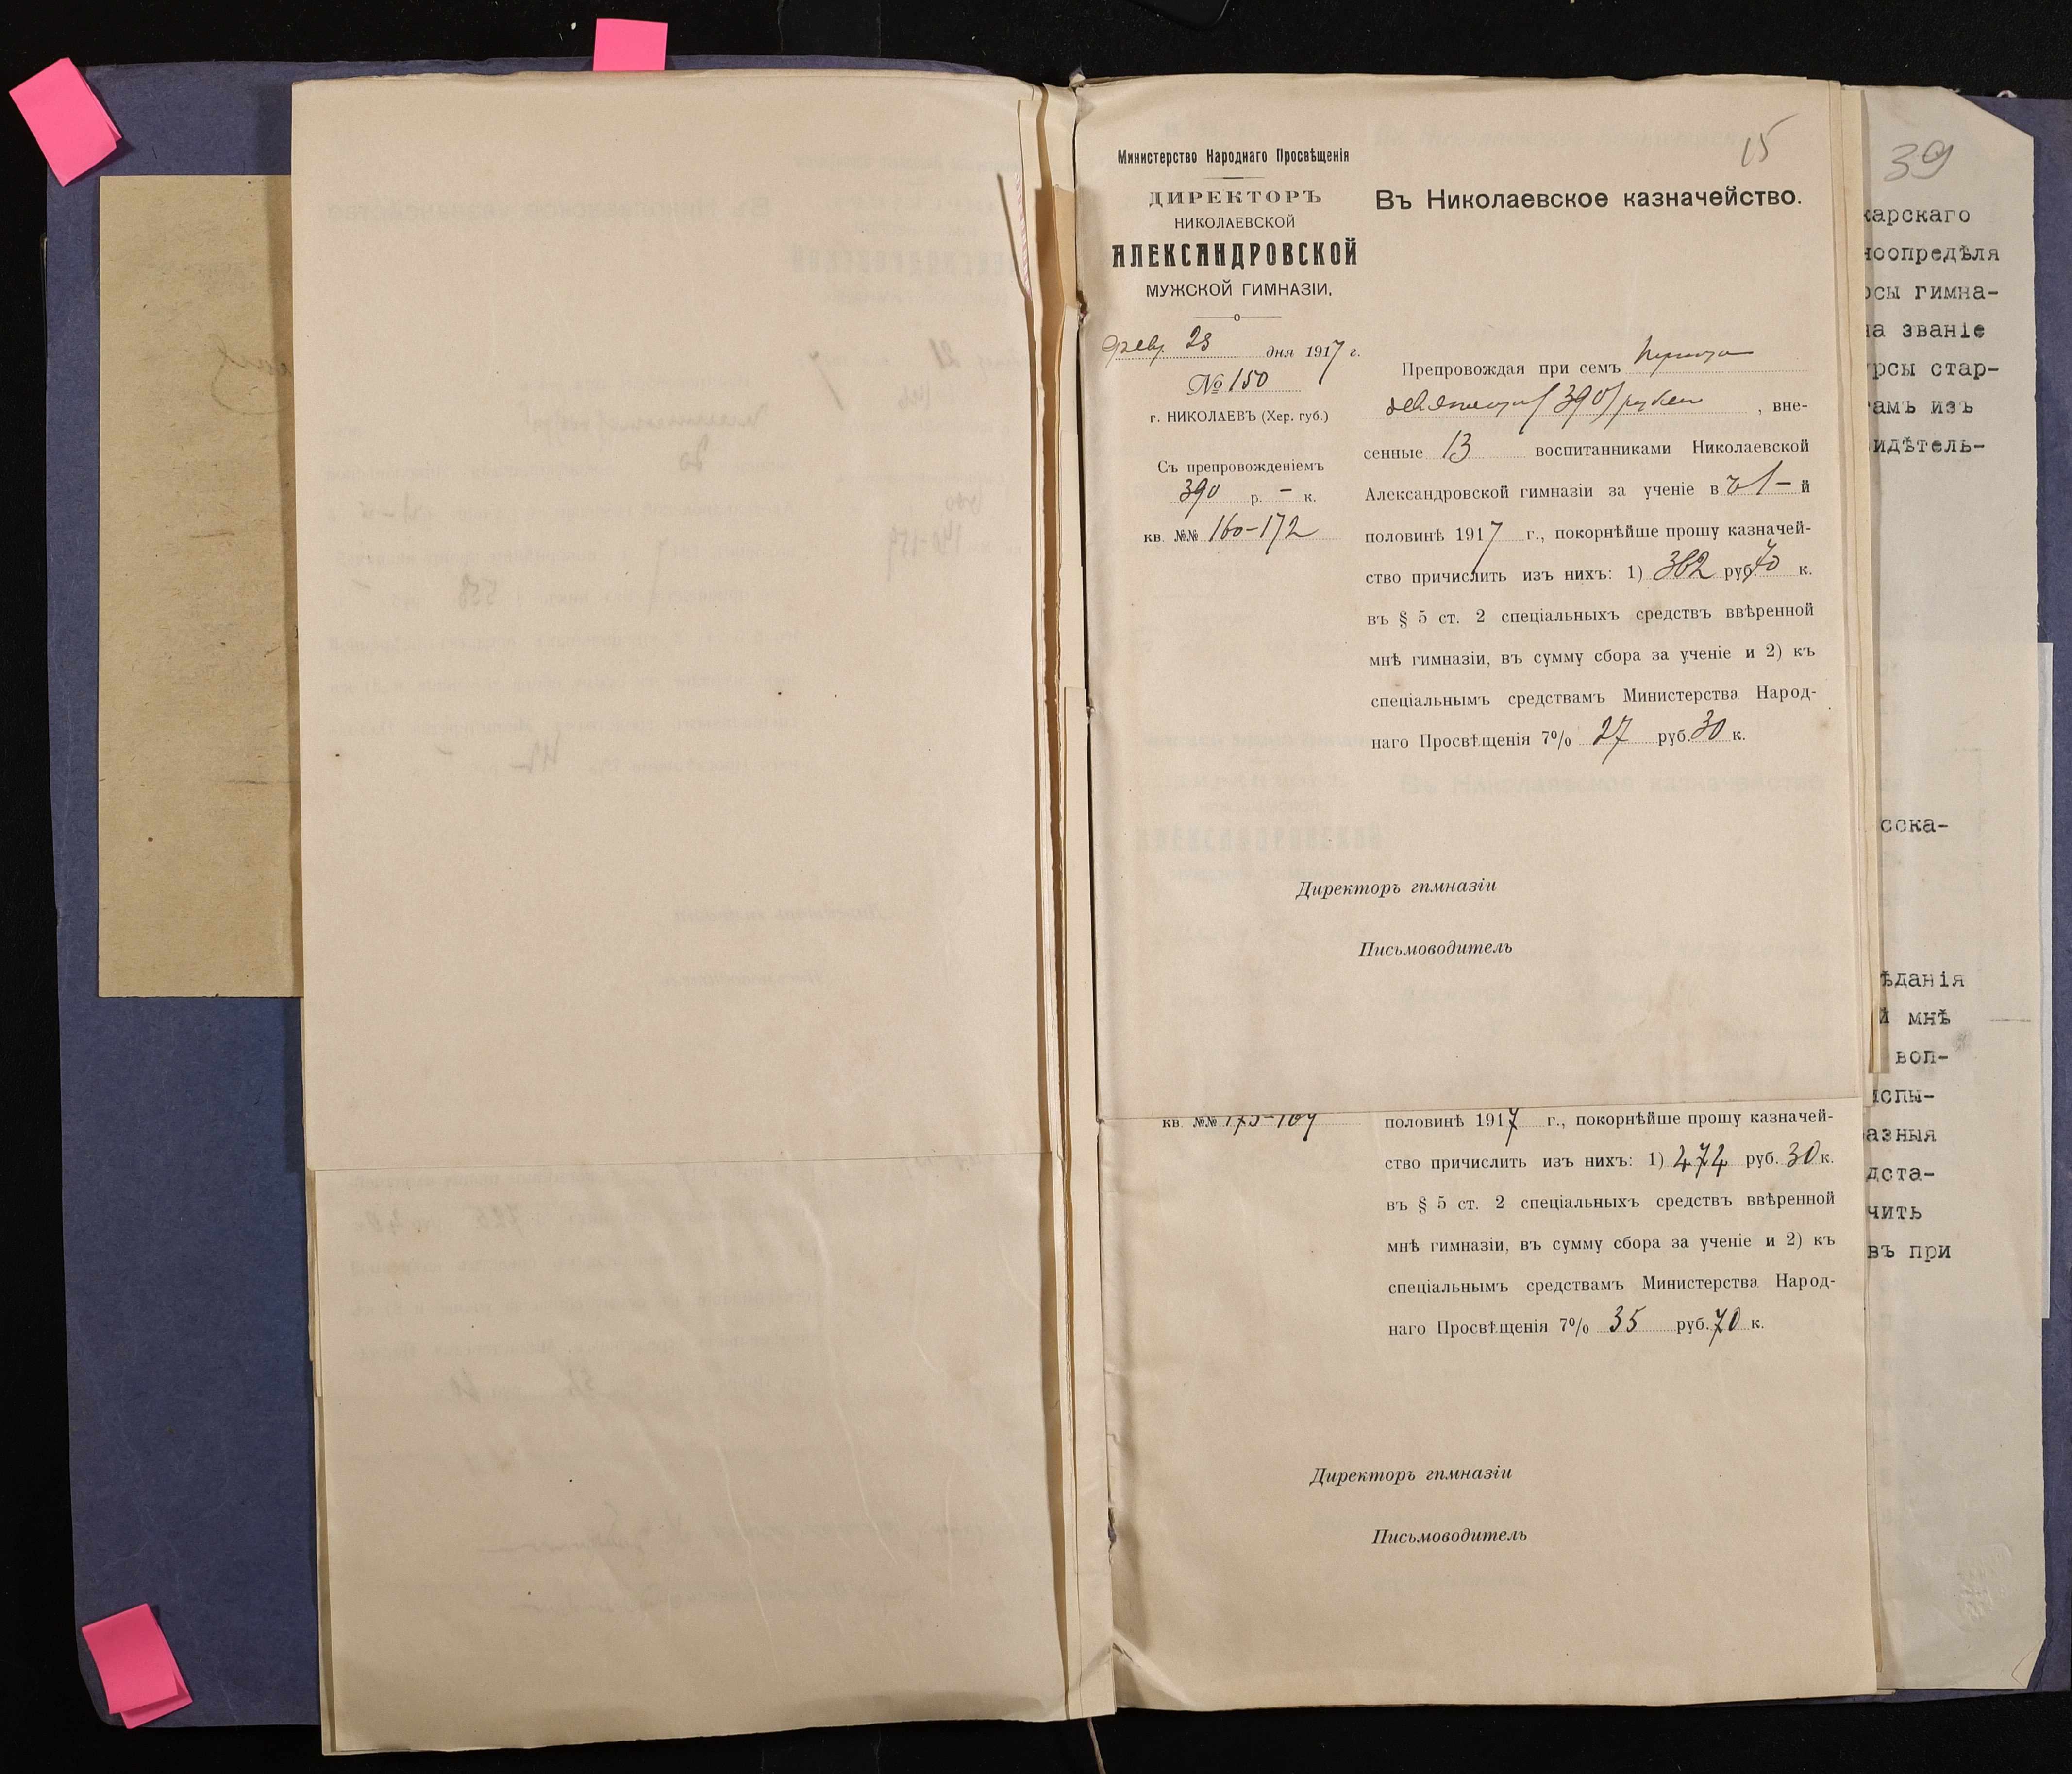 15
Министерство Народнаго Просвѣщенія
ДИРЕКТОРЪ
НИКОЛАЕВСКОЙ
АЛЕКСАНДРОВСКОЙ
МУЖСКОЙ ГИМНАЗІИ.
февр. 23 дня 1917 г.
№ 150
г. НИКОЛАЕВЪ (Хер. губ.)
Съ препровожденіемъ
390 р. - к.
кв. №№ 160-172
Въ Николаевское казначейство.
Препровождая при семъ
390/ рублей, вне-
сенные 13 воспитанниками Николаевской
Александровской гимназіи за ученіе в 1-й
половинѣ 1917 г., покорнѣйше прошу казначей-
ство причислить изъ нихъ: 1) 362 руб 70 к.
въ § 5 ст. 2 спеціальныхъ средствъ ввѣренной
мнѣ гимназіи, въ сумму сбора за ученіе и 2) къ
спеціальнымъ средствамъ Министерства Народ-
наго Просвѣщенія 7% 27 руб. 30 к.
Директоръ гимназіи
Письмоводитель
кв №№
половинѣ 1917 г., покорнѣйше прошу казначей-
ство причислить изъ нихъ: 1) 474 руб. 30 к.
въ § 5 ст. 2 спеціальныхъ средствъ ввѣренной
мнѣ гимназіи, въ сумму сбора за ученіе и 2) къ
спеціальнымъ средствамъ Министерства Народ-
наго Просвѣщенія 7% 35 руб. 70 к.
Директоръ гимназіи
Письмоводитель
39
карскаго
ноопредѣля
рсы гимна-
на званіе
урсы стар-
тамъ изъ
идѣтель-
сска-
ѣданія
й мнѣ
воп-
испы-
азныя
дста-
чить
въ при